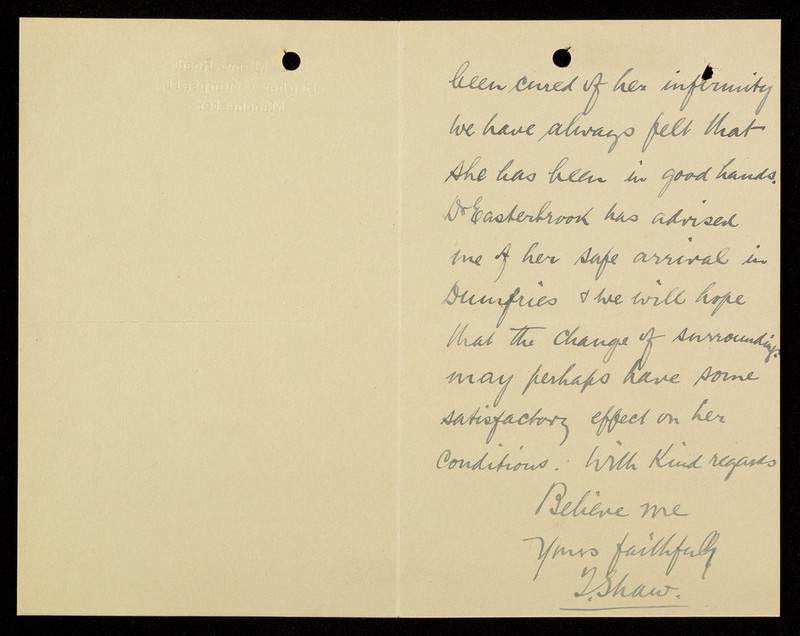 been cured of her infirmity
We have always felt that
she has been in good hands.
Dr Easterbrook has advised
me of her safe arrival in
Dumfries & we will hope
that the change of surroundings
may perhaps have some
satisfactory effect on her
conditions. With Kind regards
Believe me
Yours faithfully
T. Shaw.